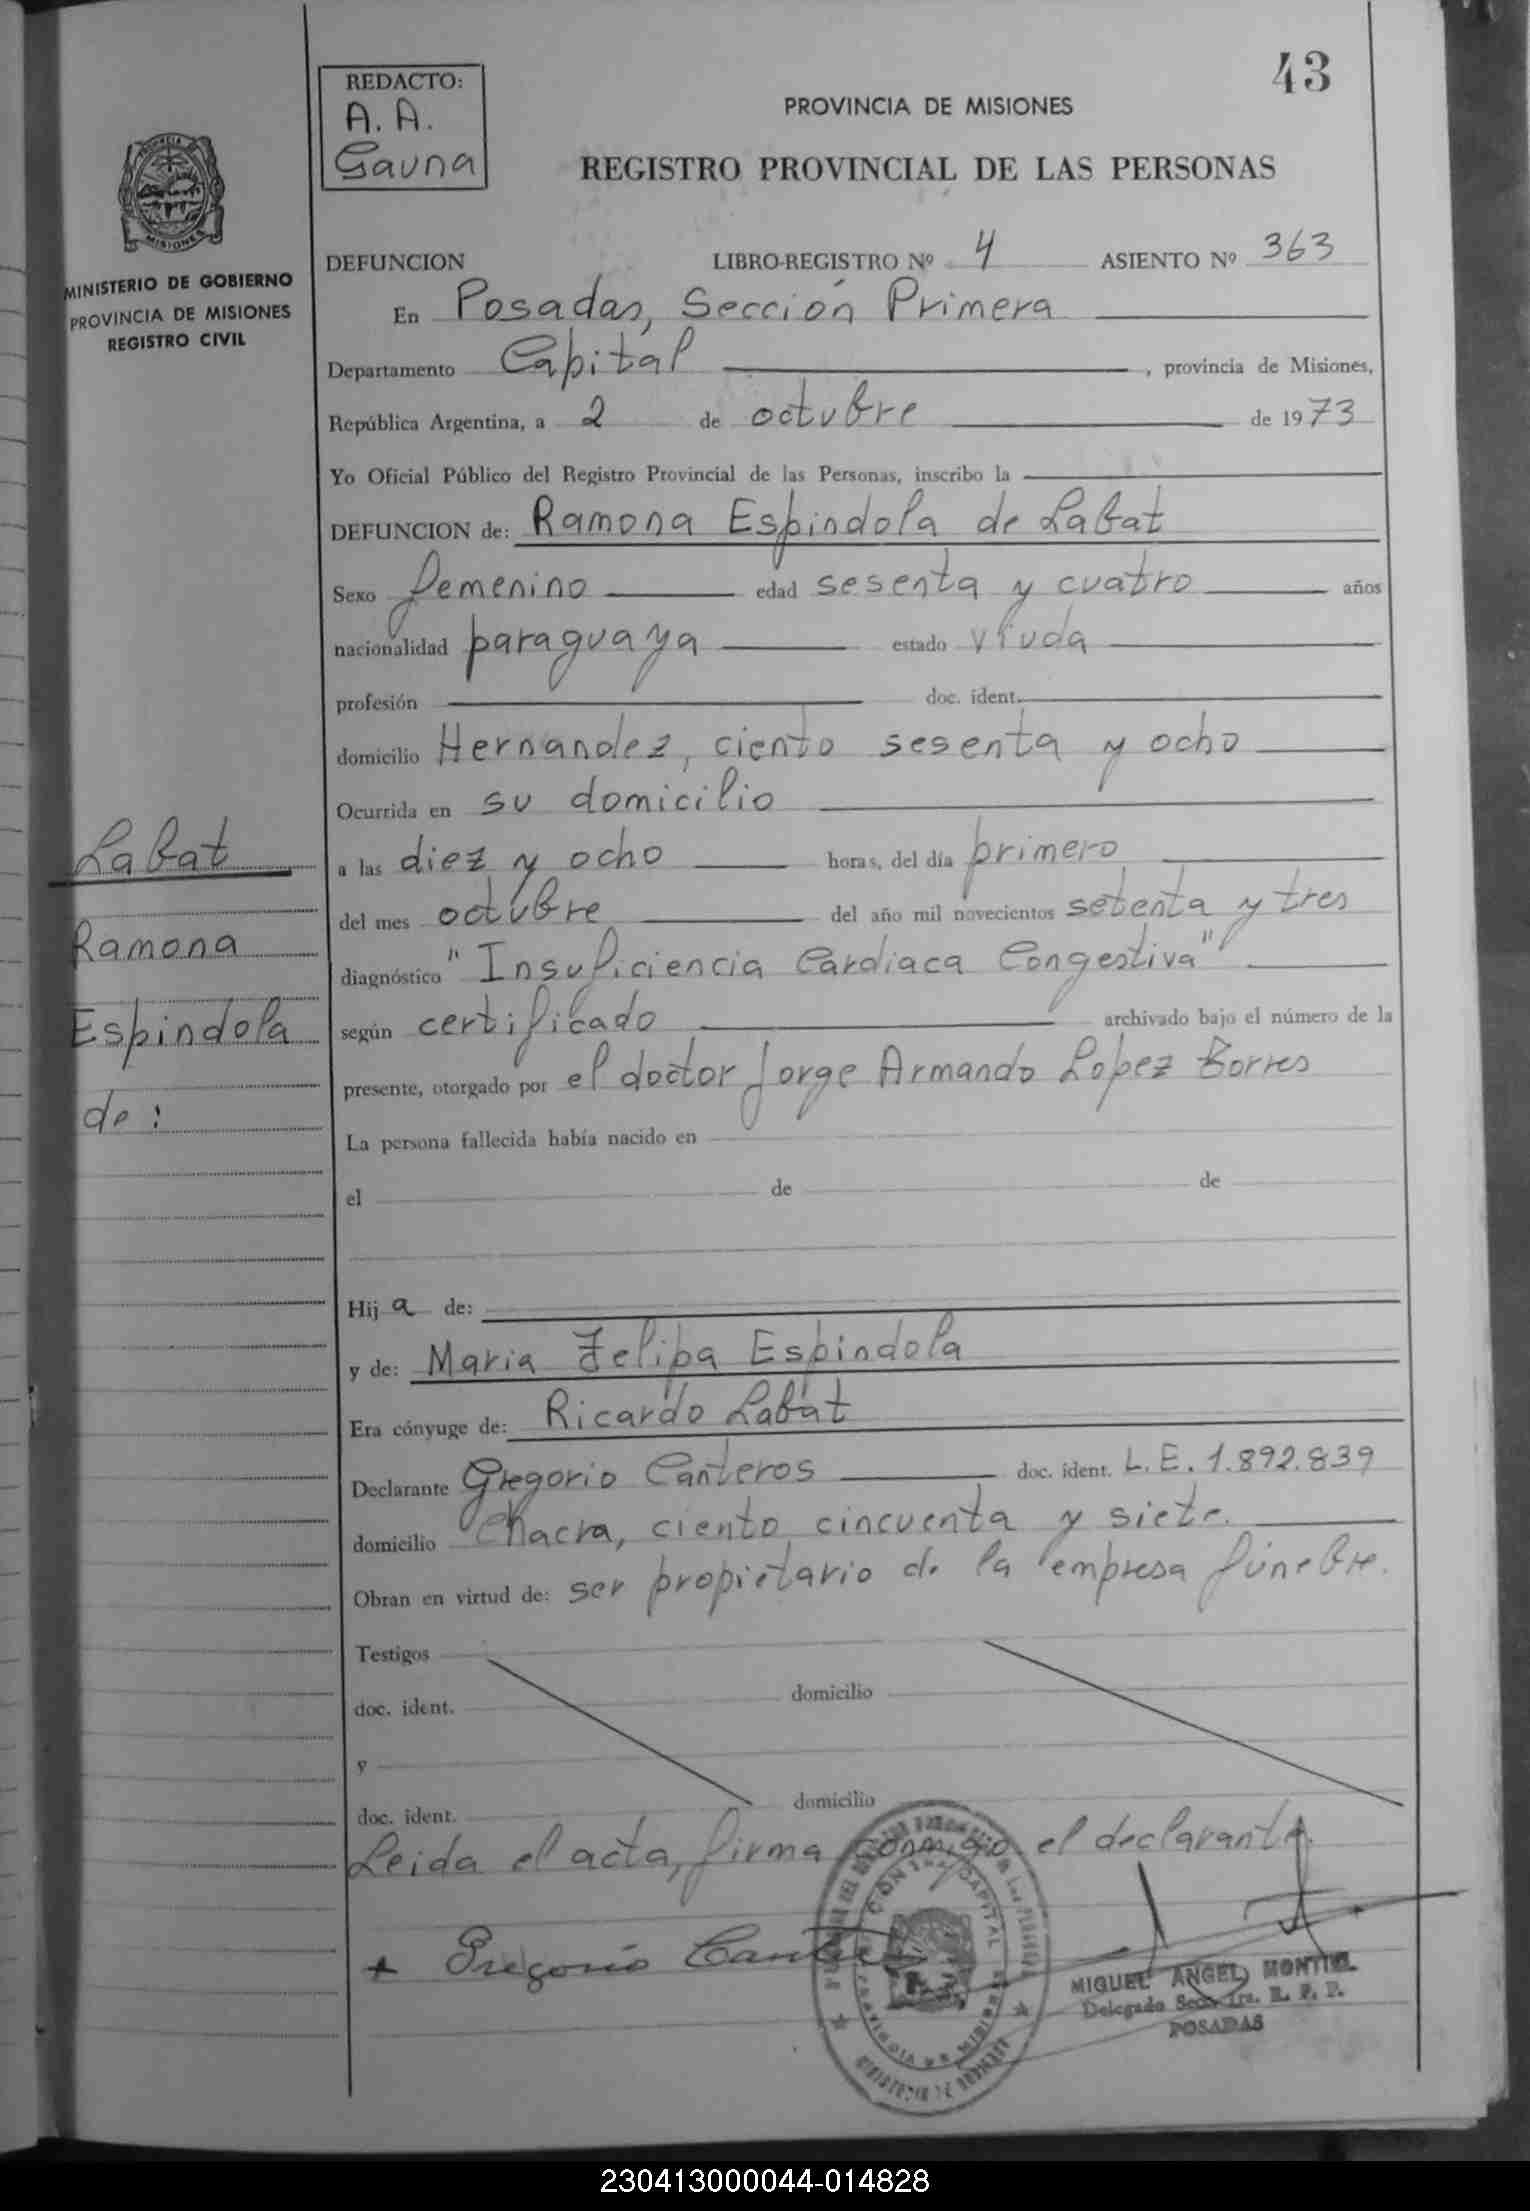 43
REDACTO:
A. A.
Gauna
PROVINCIA DE MISIONES
REGISTRO PROVINCIAL DE LAS PERSONAS
MISIONES
MINISTERIO DE GOBIERNO
PROVINCIA DE MISIONES
REGISTRO CIVIL
DEFUNCION LIBRO-REGISTRO Nº 4 ASIENTO Nº 363
En Posadas, Sección Primera
Departamento Capital , provincia de Misiones,
República Argentina, a 2 de octubre de 1973
Yo Oficial Público del Registro Provincial de las Personas, inscribo la
DEFUNCION de: Ramona Espindola de Labat
Sexo femenino edad sesenta y cuatro años
nacionalidad paraguaya estado viuda
profesión doc. ident.
domicilio Hernandez, ciento sesenta y ocho
Ocurrida en su domicilio
a las diez y ocho horas, del día primero
del mes octubre del año mil novecientos setenta y tres
diagnóstico "Insuficiencia Cardiaca Congestiva"
según certificado archivado bajo el número de la
presente, otorgado por el doctor Jorge Armando Lopez Borres
La persona fallecida había nacido en
el de de
Hij a de:
y de: Maria Felipa Espindola
Era cónyuge de: Ricardo Labat
Declarante Gregorio Canteros doc. ident. L.E. 1.892.839
domicilio Chacra, ciento cincuenta y siete.
Obran en virtud de: ser propietario de la empresa fúnebre.
Testigos
doc. ident. domicilio
y
doc. ident. domicilio
Leida el acta, firma conmigo el declarante.
Labat
Ramona
Espindola
de:
Gregorio
MIGUEL ANGEL MONTIEL
Delegado Secc. 1ra. R. P. P.
POSADAS
CAPITAL
230413000044-014828